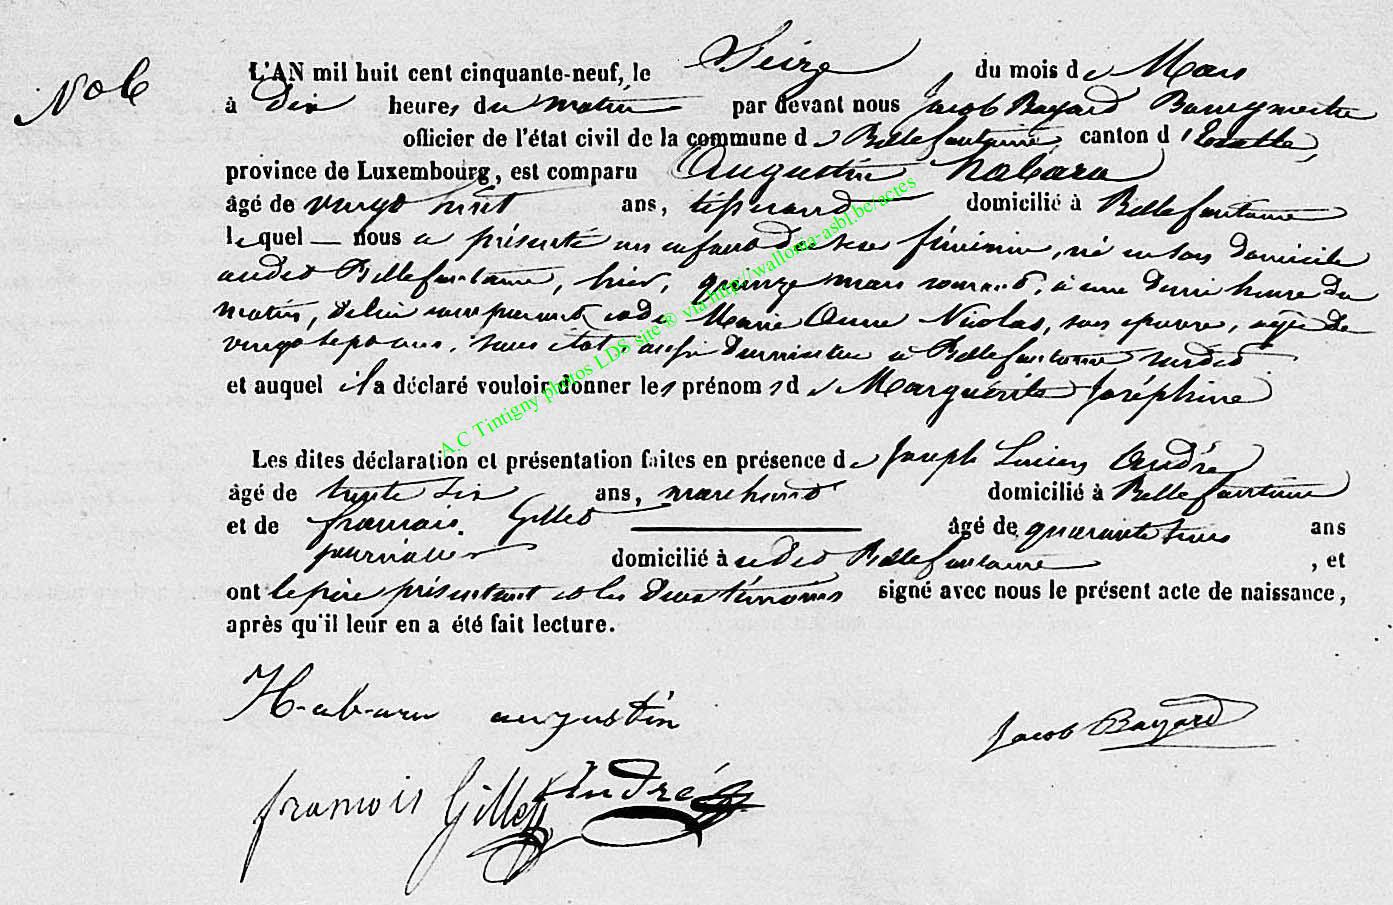 No 6
L'AN mil huit cent cinquante-neuf, le Seize du mois de Mars
à Dix heures du matin par devant nous Jacob Bayard Bourgmestre
officier de l'état civil de la commune de Bellefontaine, canton d'Etalle,
province de Luxembourg, est comparu Augustin Habara
âgé de vingt huit ans, tisserand domicilié à Bellefontaine
lequel nous a présenté un enfant du sexe féminin, né en son domicile
audit Bellefontaine, hier, quinze mars courant, à une demi heure du
matin, de lui comparant et de Marie Anne Nicolas, son épouse, agée de
vingt sept ans, sans état, aussi domiciliée à Bellefontaine susdit
et auquel il a déclaré vouloir donner les prénoms de Marguerite Joséphine
Les dites déclaration et présentation faites en présence de Joseph Lucien André
âgé de trente six ans, marchand domicilié à Bellefontaine
et de francois Gillet âgé de quarante trois ans
journalier domicilié à udit Bellefontaine, et
ont le père présentant et les deux témoins signé avec nous le présent acte de naissance,
après qu'il leur en a été fait lecture.
Habaru augustin
Jacob Bayard
francois Gillet André
A.C Tintigny photos LDS site ® via http://wallonia-asbl.be/actes